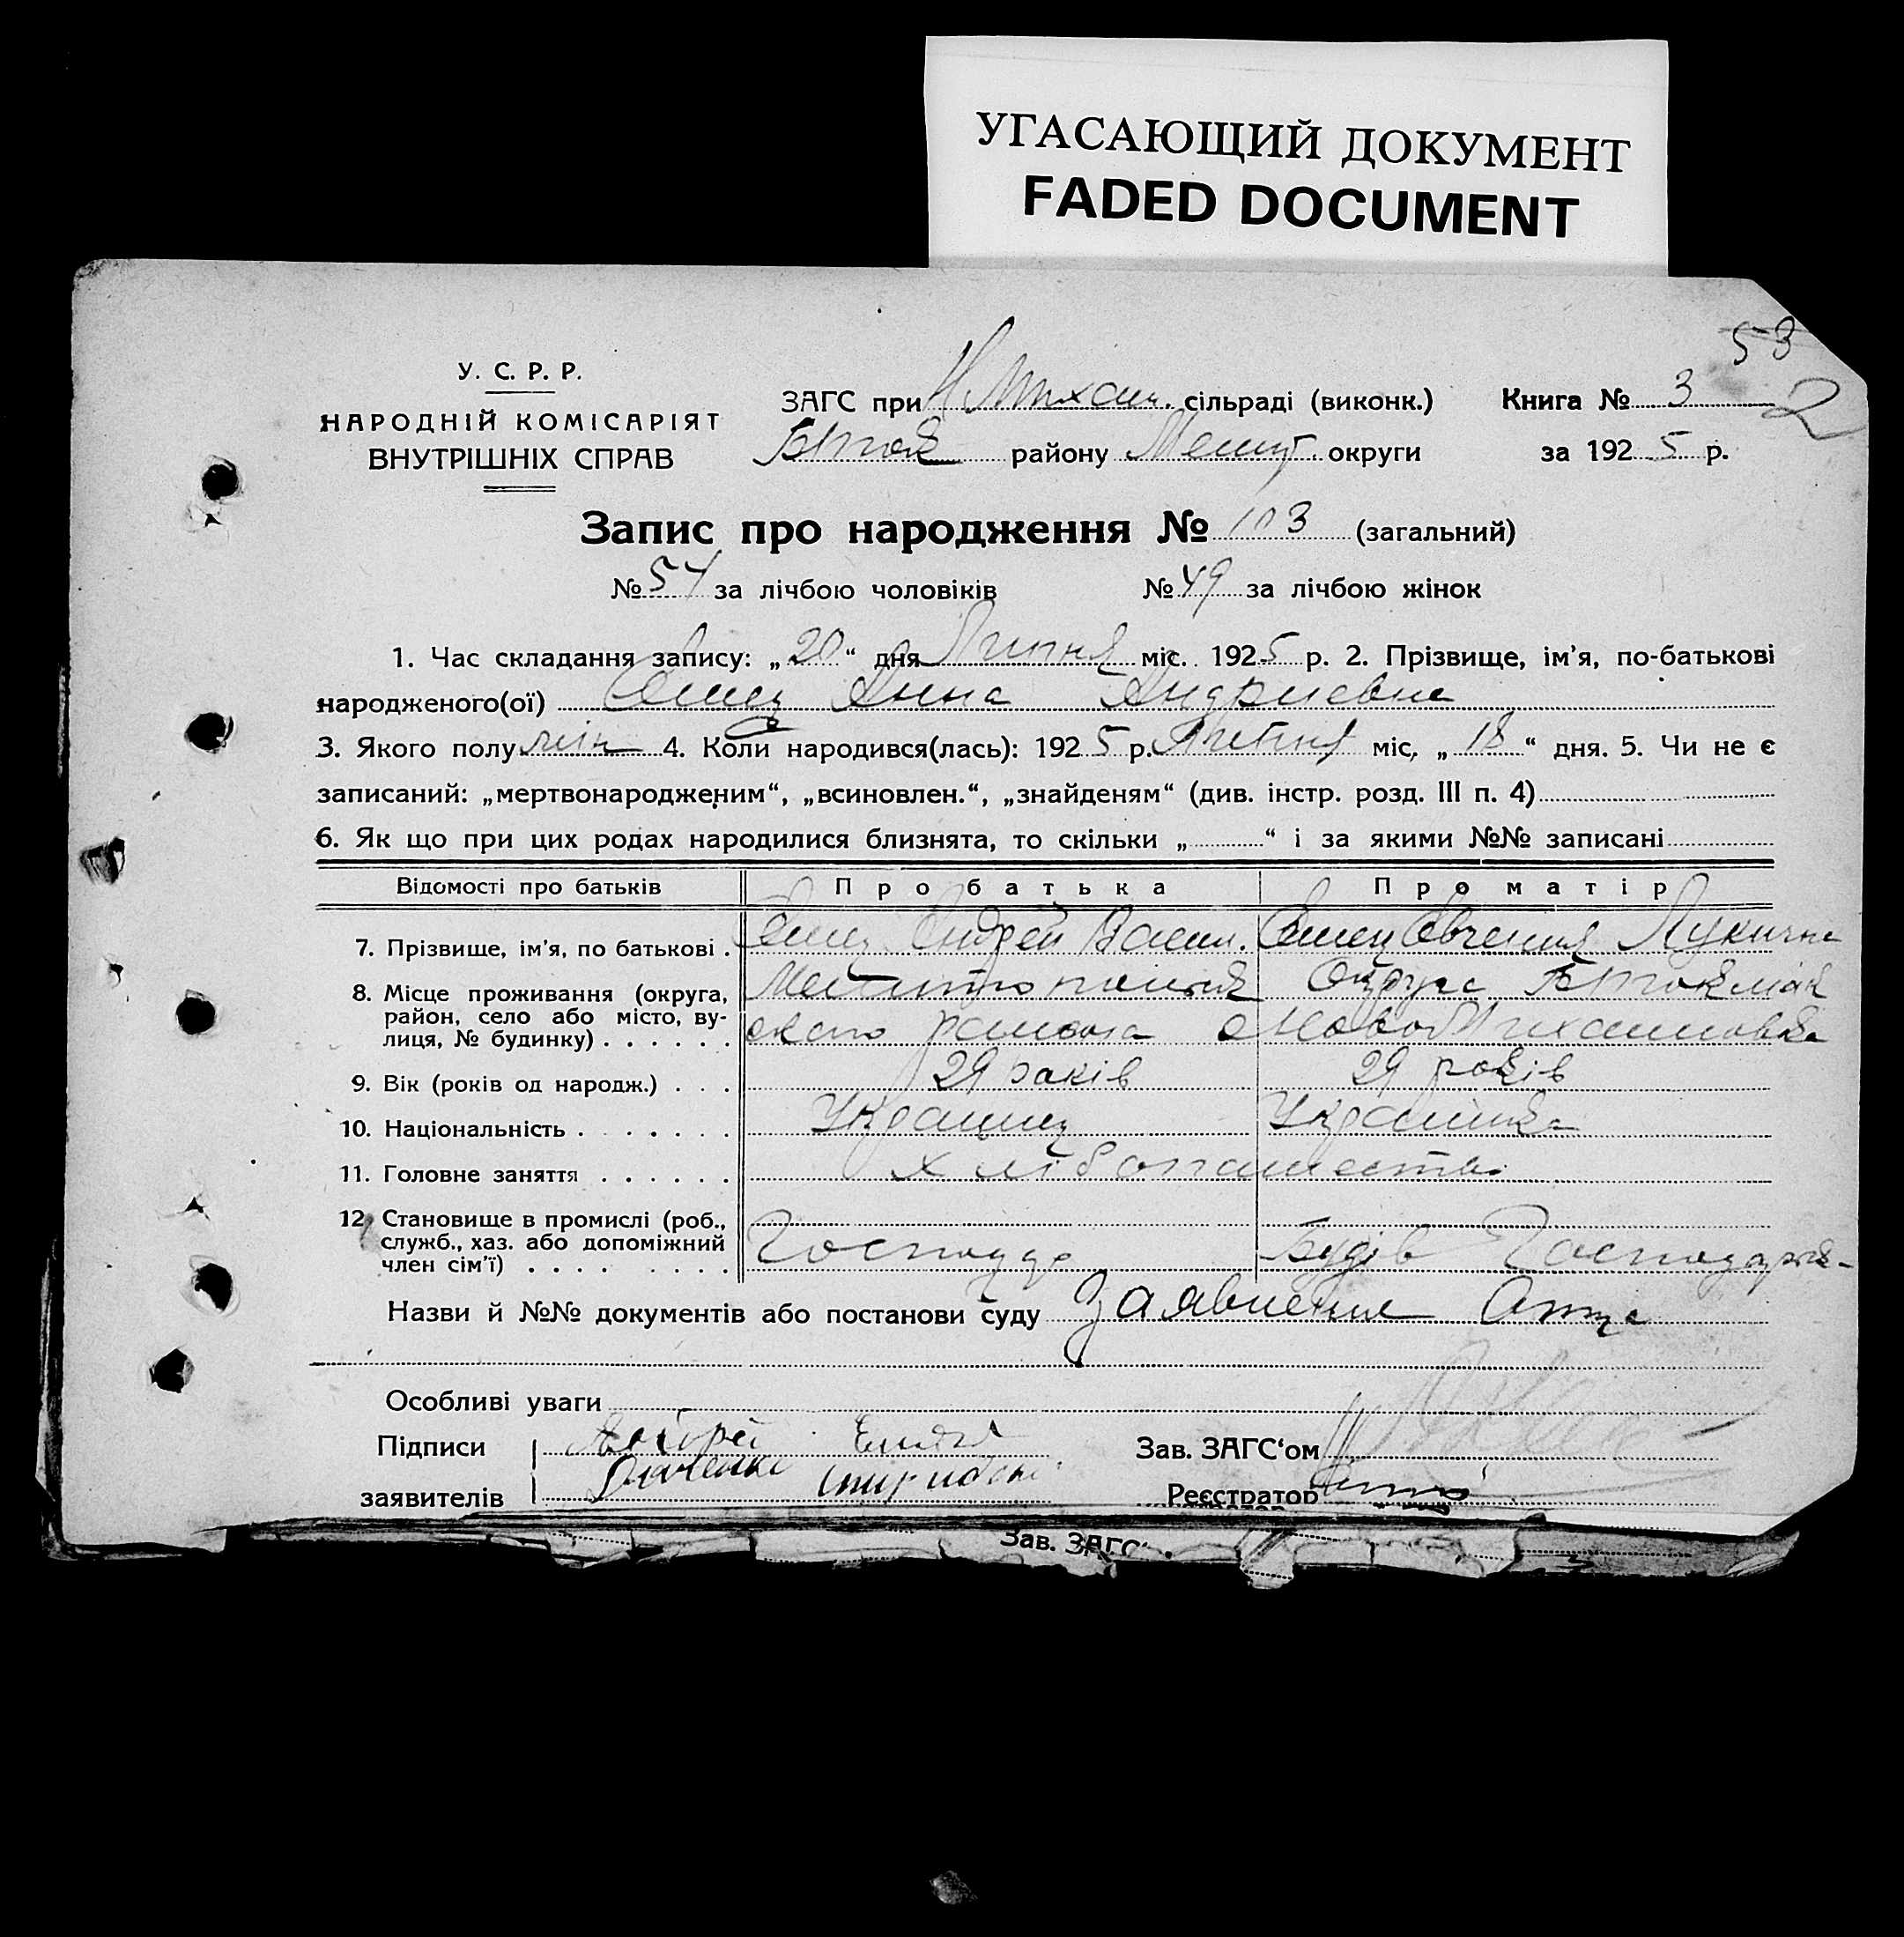 УГАСАЮЩИЙ ДОКУМЕНТ
FADED DOCUMENT
53
2
У. С. Р. Р.
НАРОДНІЙ КОМІСАРІЯТ
ВНУТРІШНІХ СПРАВ
ЗАГС при Н Михайл. сільраді (виконк.) Книга № 3
району Меліт. округи за 1925 р.
Запис про народження № 103 (загальний)
№ 54 за лічбою чоловіків № 49 за лічбою жінок
1. Час складання запису: „20“ дня Липня міс. 1925 р. 2. Прізвище, ім'я, по-батькові
народженого(ої) Анна Андриевна
3. Якого полу жін 4. Коли народився(лась): 1925 р. Липня міс, „18“ дня. 5. Чи не є
записаний: „мертвонародженим“, „всиновлен.“, „знайденям“ (див. інстр. розд. III п. 4)
6. Як що при цих родах народилися близнята, то скільки „ “ і за якими №№ записані
Відомості про батьків Про батька Про матір
7. Прізвище, ім'я, по батькові . Андрей Васил. Лукична
8. Місце проживання (округа, Округа
район, село або місто, ву- района Ново Михаиловка
лиця, № будинку) . . . . . .
9. Вік (років од народж.) . . . 29 років 29 років
10. Національність . . . . . . . Украинец Украинка
11. Головне заняття . . . . . . хлібопашество
12. Становище в промислі (роб.,
служб., хаз. або допоміжний Господар
член сім'ї) . . . . . . . .
Назви й №№ документів або постанови суду Заявления Отца
Особливі уваги
Підписи Андрей Зав. ЗАГС‘ом
заявителів Реєстратор
Зав. ЗАГС‘